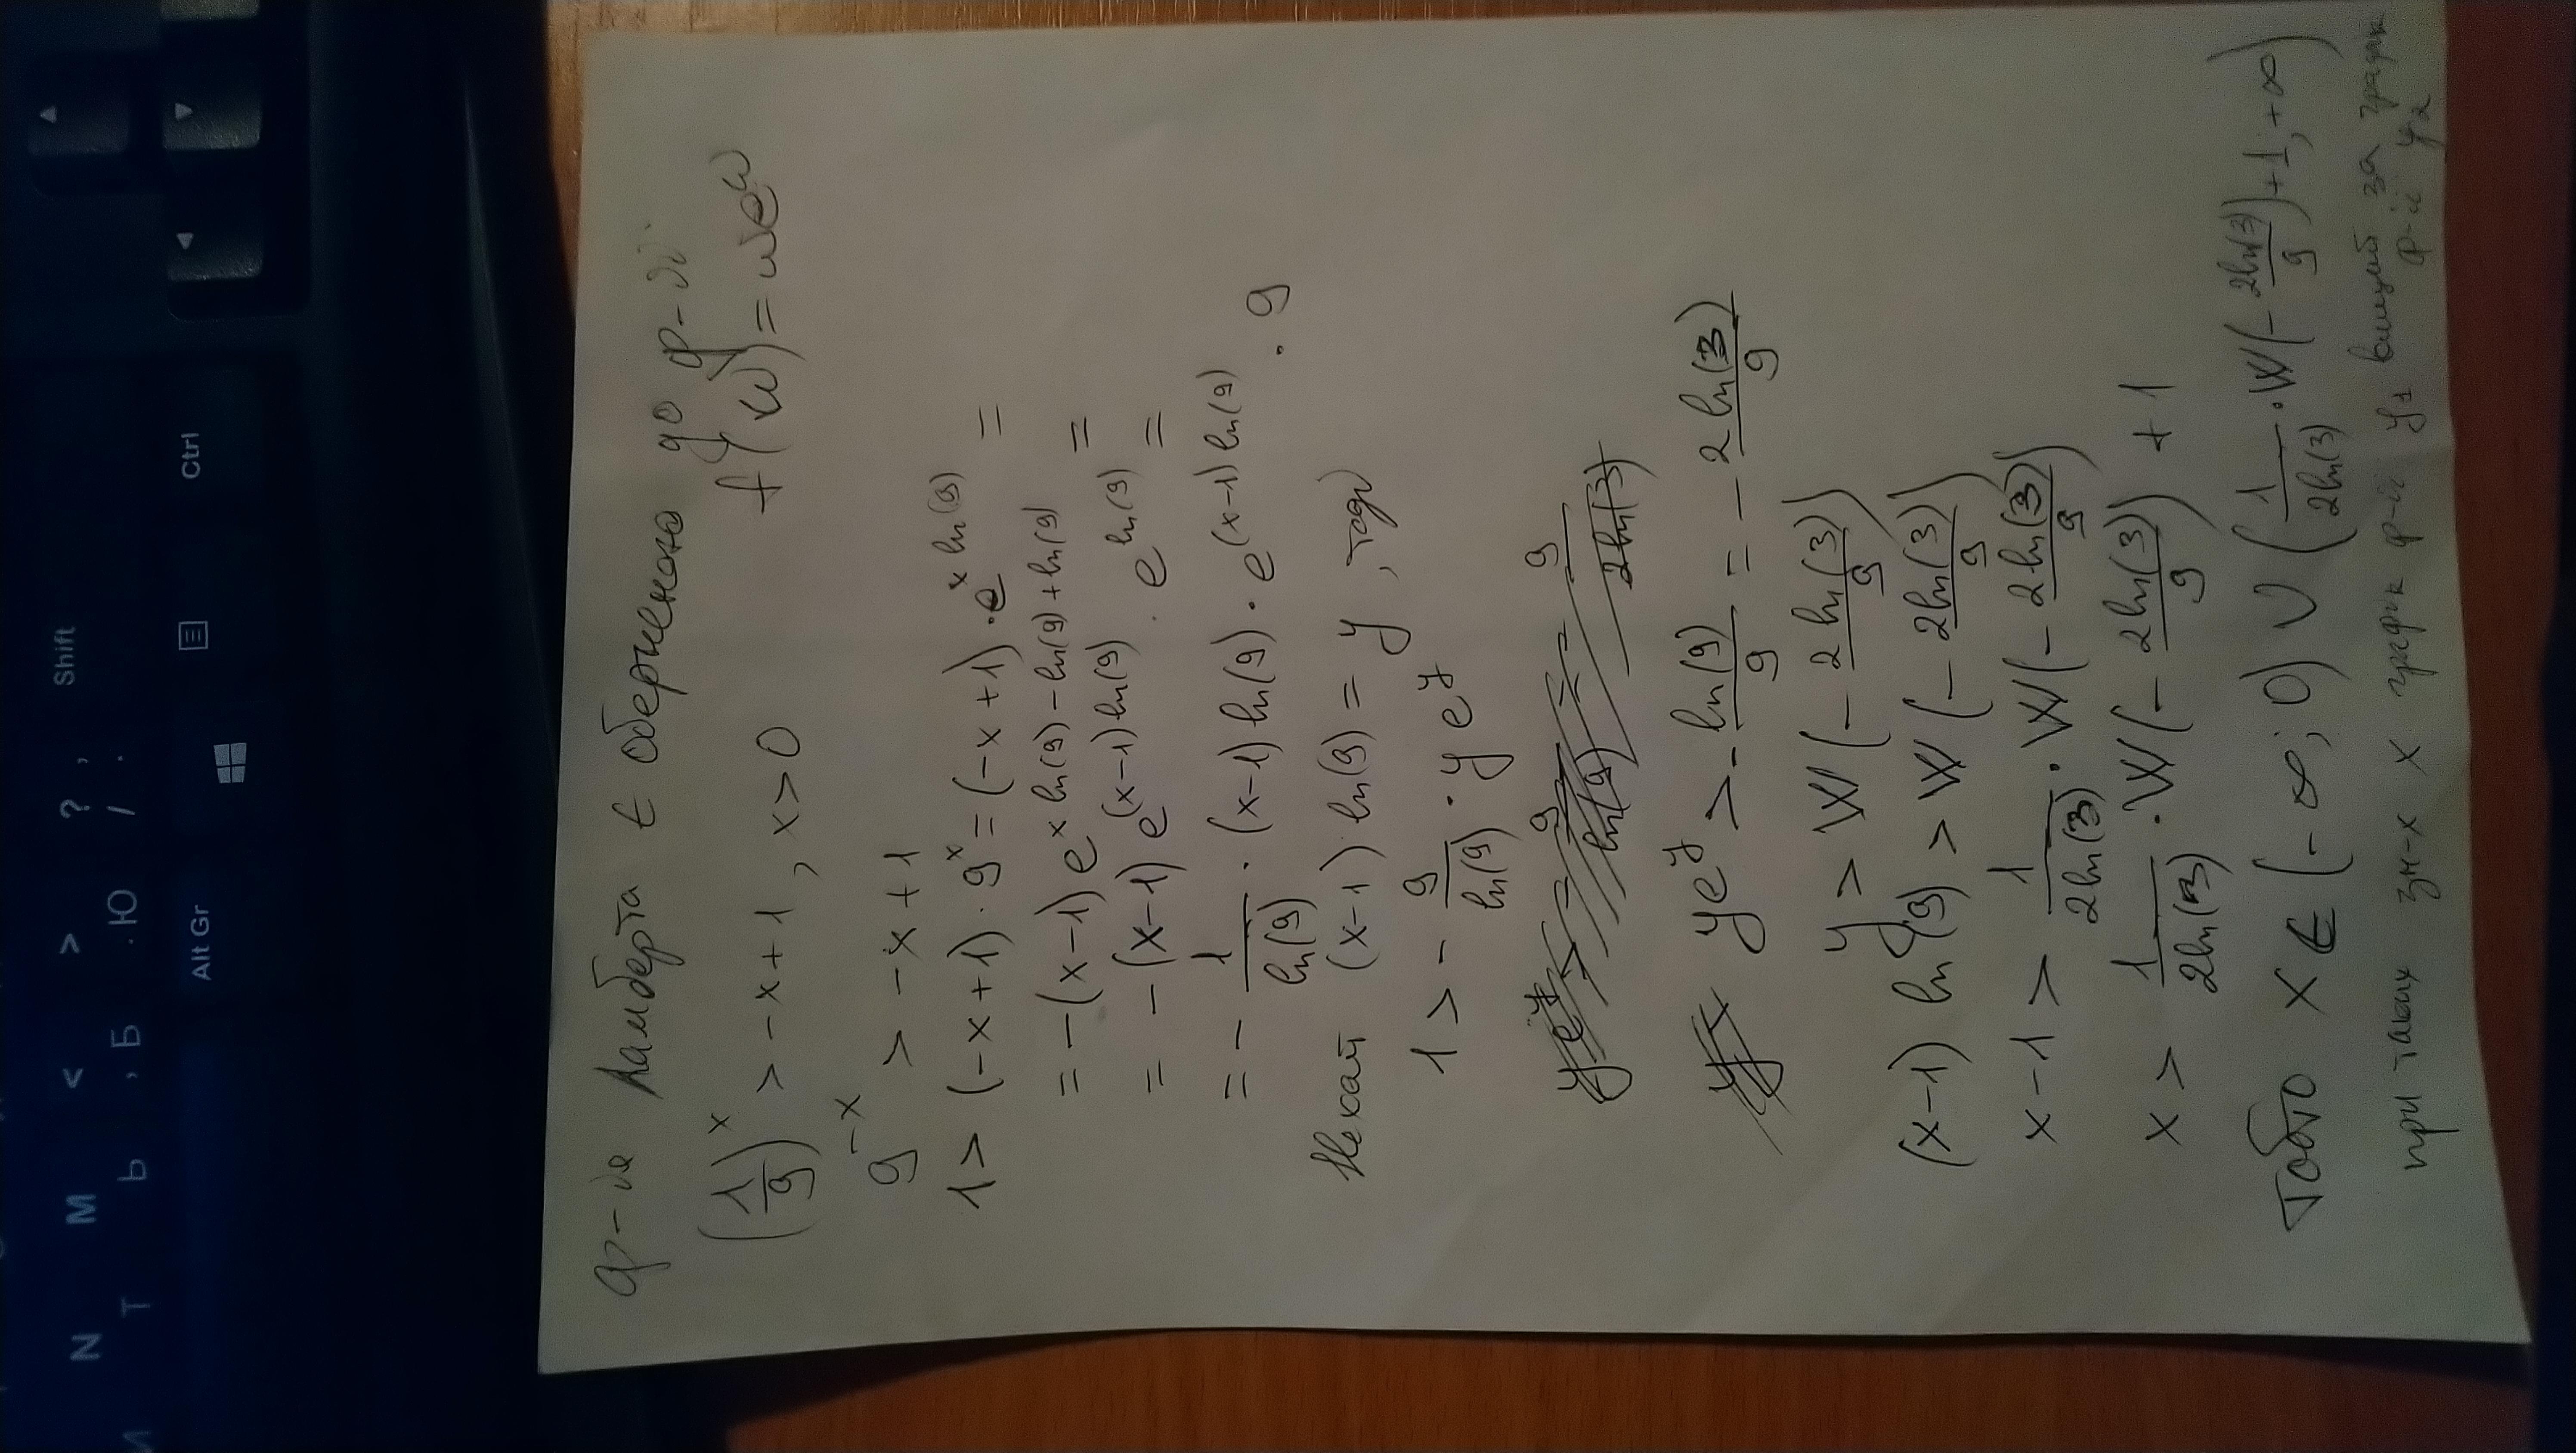 ф-ія Ламберта є оберненою до ф-ії
f(w) = we^w
(1/9)^x > -x+1, x>0
9^-x > -x+1
1 > (-x+1)·9^x = (-x+1)·e^x ln(9) =
= -(x-1)e^x ln(9) - ln(9) + ln(9) =
= -(x-1)e^(x-1)ln(9) · e^ln(9) =
= - 1/ln(9) · (x-1)ln(9) · e^(x-1)ln(9) · 9
Нехай (x-1) ln(9) = y, тоді
1 > - 9/ln(9) · ye^y
ye^y > - ln(9)/9 = - 2ln(3)/9
y > W(- 2ln(3)/9)
(x-1) ln(9) > W(- 2ln(3)/9)
x-1 > 1/2ln(3) · W(- 2ln(3)/9)
x > 1/2ln(3) · W(- 2ln(3)/9) + 1
Тобто x ∈ (-∞; 0) ∪ (1/2ln(3) · W(- 2ln(3)/9)+1; +∞)
при таких зн-х x графік ф-ії y1 вищий за графік
ф-ії y2
Shift
Ctrl
Alt Gr
N
M
<
>
?
;
Т
Ь
, Б
. Ю
/